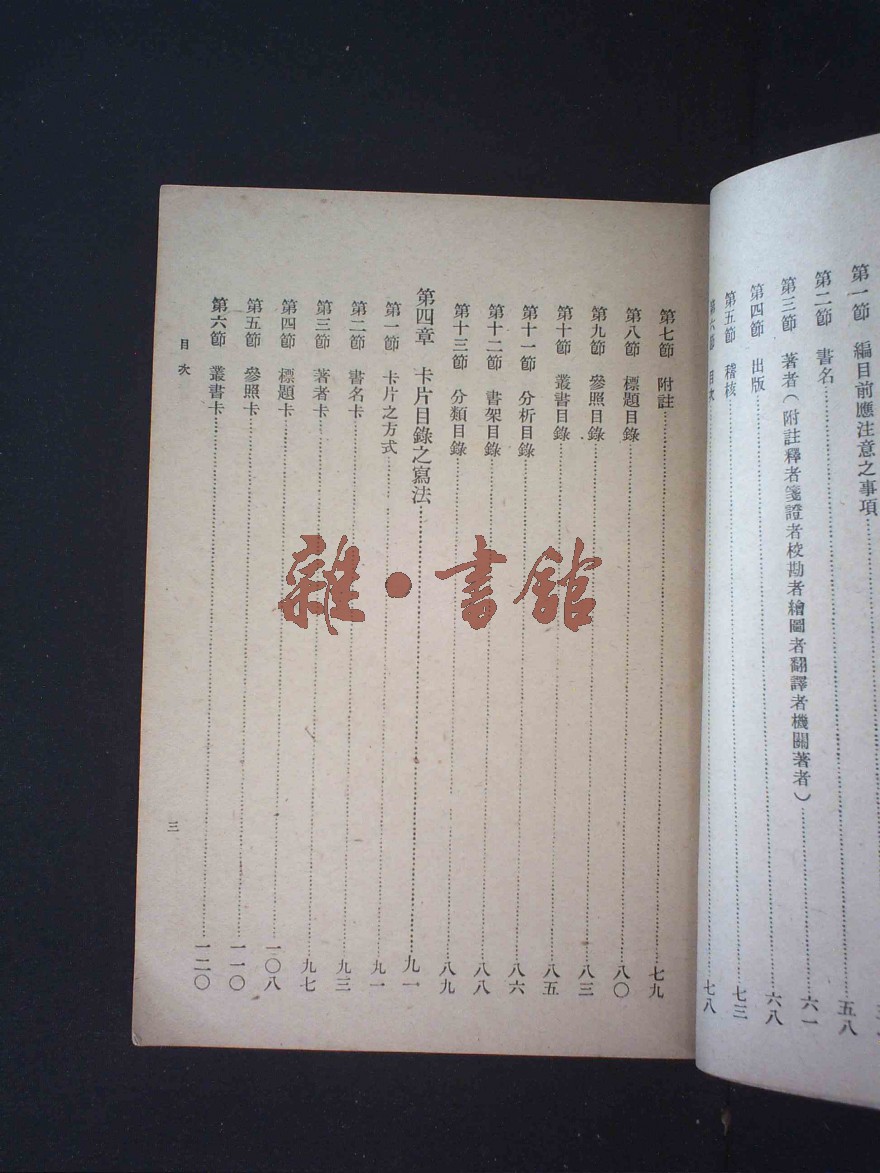 第一節 編目前應注意之事項
第二節 書名 五八
第三節 著者(附註釋者箋證者校勘者繪圖者翻譯者機關著者) 六一
第四節 出版 六八
第五節 稽核 七三
第六節 目次 七八
第七節 附註 七九
第八節 標題目錄 八〇
第九節 參照目錄 八三
第十節 叢書目錄 八五
第十一節 分析目錄 八六
第十二節 書架目錄 八八
第十三節 分類目錄 八九
第四章 卡片目錄之寫法 九一
第一節 卡片之方式 九一
第二節 書名卡 九三
第三節 著者卡 九七
第四節 標題卡 一〇八
第五節 參照卡 一一〇
第六節 叢書卡 一二〇
目次
三
雜·書館